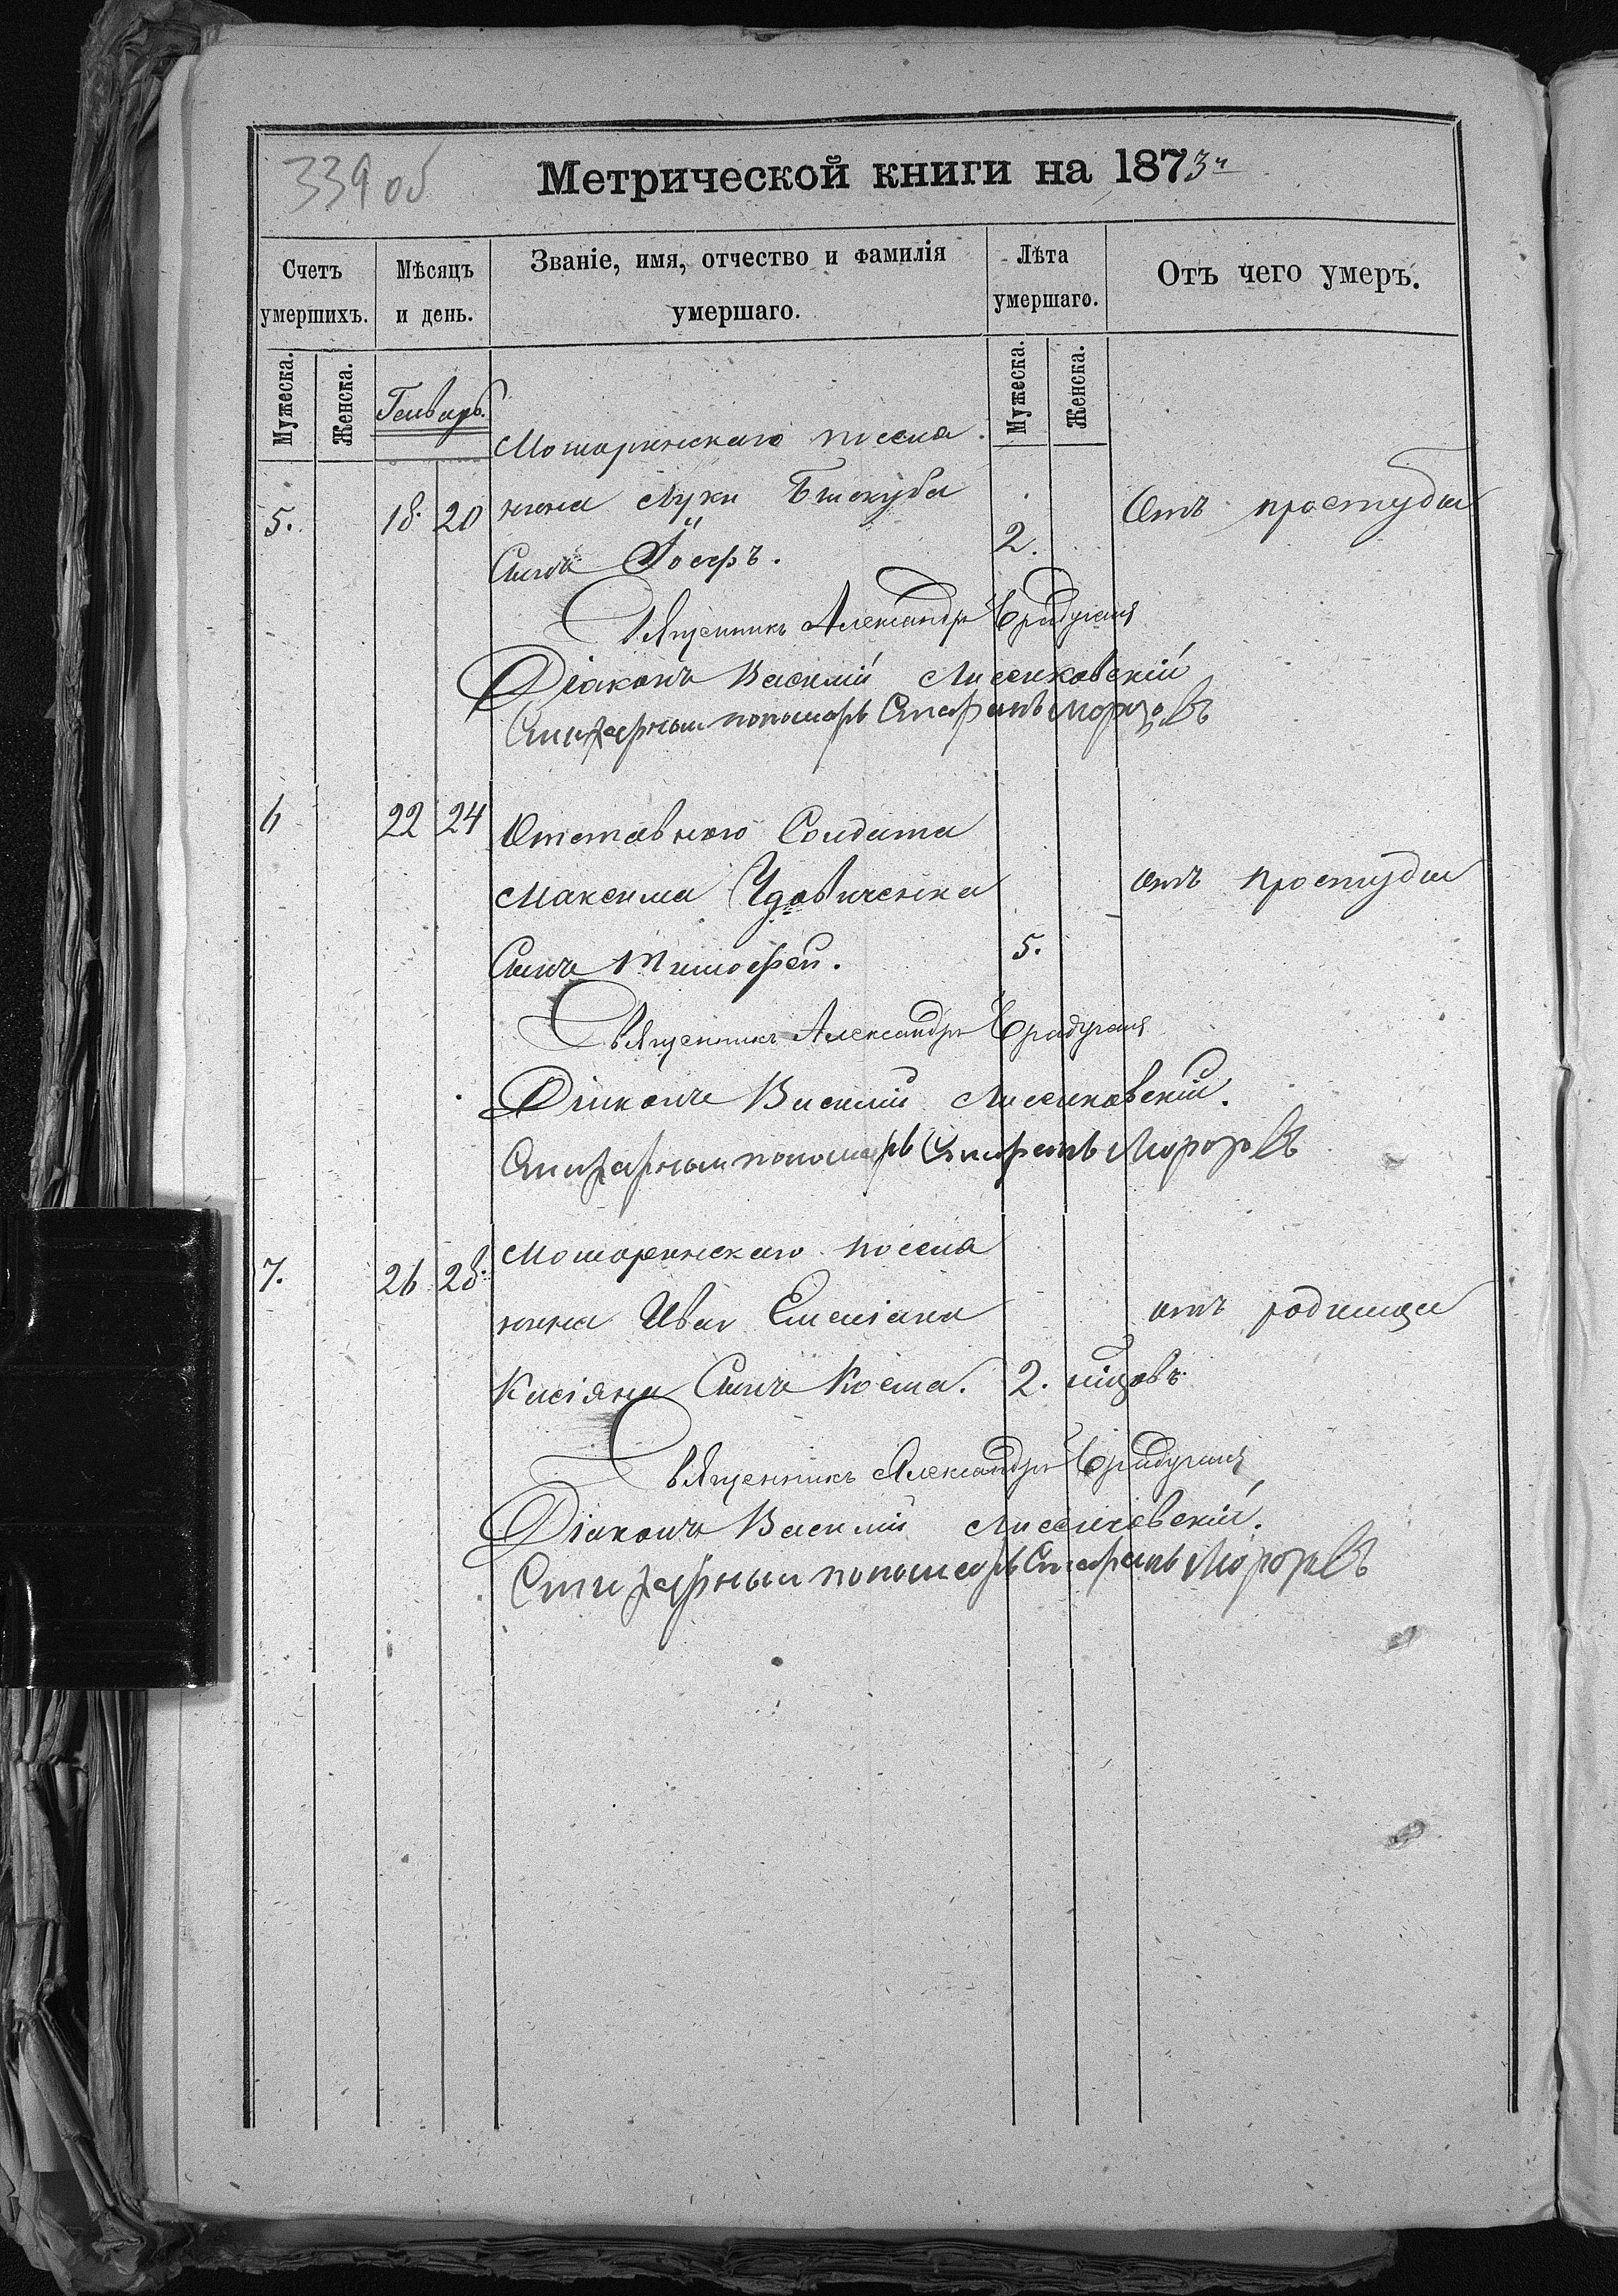 339 об
Метрической книги на 1873й
Счетъ умершихъ. Мѣсяцъ и день. Званіе, имя, отчество и фамилія умершаго. Лѣта умершаго. Отъ чего умеръ.
Мужеска. Женска. Генварь. Мужеска. Женска.
Мошоринскаго посела
5. 18. 20 нина Луки Бшокуба Отъ простуды
Сынъ Іосифъ. 2.
Священникъ Александръ
Діаконъ Василій Лисенковскій
Стихарный пономарь Стефанъ Морозовъ
6 22 24 Отставного Солдата
Максима Удовиченка отъ простуды
Сынъ Тимофей. 5.
Священникъ Александръ
Діаконъ Василій Лисенковскій.
Стихарный пономарь Стефанъ Морозовъ
Мошоринскаго посела
7. 26 28. нина Иван Емеліана отъ родимца
Касіяна Сынъ Косма. 2. мцовъ.
Священникъ Александръ
Діаконъ Василій Лисенковскій.
Стихарный пономарь Стефанъ Морозовъ